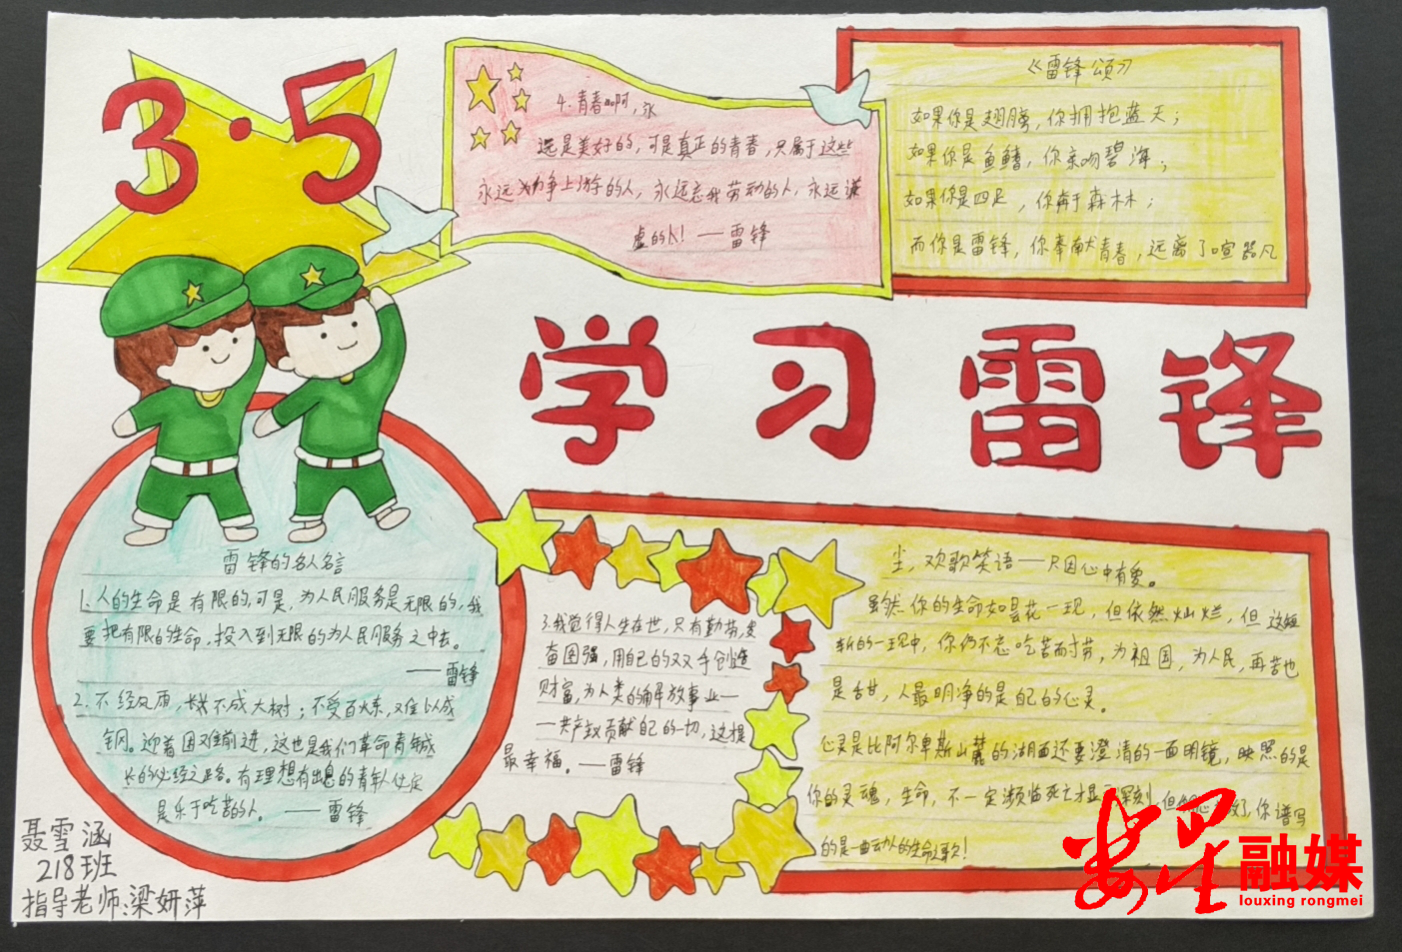 3·5
4.青春啊,永
远是美好的,可是真正的青春,只属于这些
永远力争上游的人,永远忘我劳动的人,永远谦
虚的人!——雷锋
《雷锋颂》
如果你是翅膀,你拥抱蓝天;
如果你是鱼鳍,你亲吻碧海;
如果你是四足,你奔于森林;
而你是雷锋,你奉献青春,远离了喧嚣凡
学习雷锋
雷锋的名人名言
1.人的生命是有限的,可是,为人民服务是无限的,我
要把有限的生命,投入到无限的为人民服务之中去。
——雷锋
2.不经风雨,长不成大树;不受百炼,难以成
钢。迎着困难前进,这也是我们革命青年成
长的必经之路。有理想有出息的青年人必定
是乐于吃苦的人。——雷锋
3.我觉得人生在世,只有勤劳,发
奋图强,用自己的双手创造
财富,为人类的解放事业—
—共产主义贡献自己的一切,这才是
最幸福。——雷锋
尘,欢歌笑语——只因心中有爱。
虽然你的生命如昙花一现,但依然灿烂,但这短
暂的一现中,你仍不忘吃苦耐劳,为祖国,为人民,再苦也
是甘甜,人最明净的是自己的心灵。
心灵是比阿尔卑斯山麓的湖面还要澄清的一面明镜,映照的是
你的灵魂,生命,不一定濒临死亡才显深刻,但你,你谱写
的是一曲动人的生命之歌!
聂雪涵
218班
指导老师:梁妍萍
娄星融媒
louxing rongmei